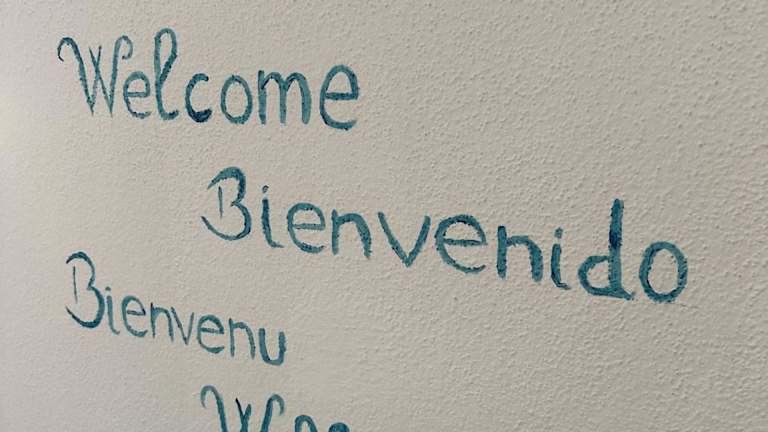 Welcome
Bienvenido
Bienvenu